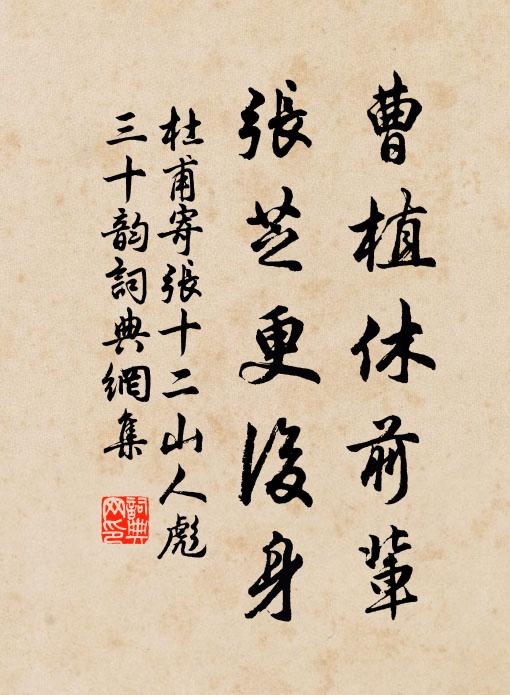 曹植休前輩
張芝更後身
杜甫寄張十二山人彪
三十韵詞典網集
詞典網印